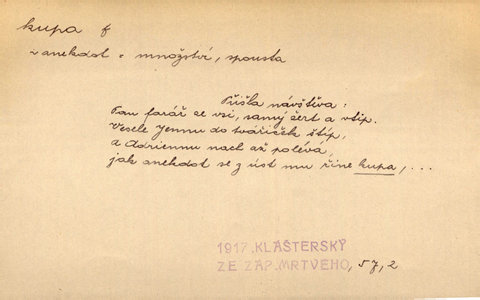 kupa f
~ anekdot = množství, spousta
Přišla návštěva:
Pan farář ze vsi, samý čert a vtip.
Vesele Jennu do tvářiček štíp,
a Adriennu nach až polévá,
jak anekdot se z úst mu řine kupa, ...
1917. KLÁŠTERSKÝ
ZE ZÁP. MRTVÉHO, 57, 2